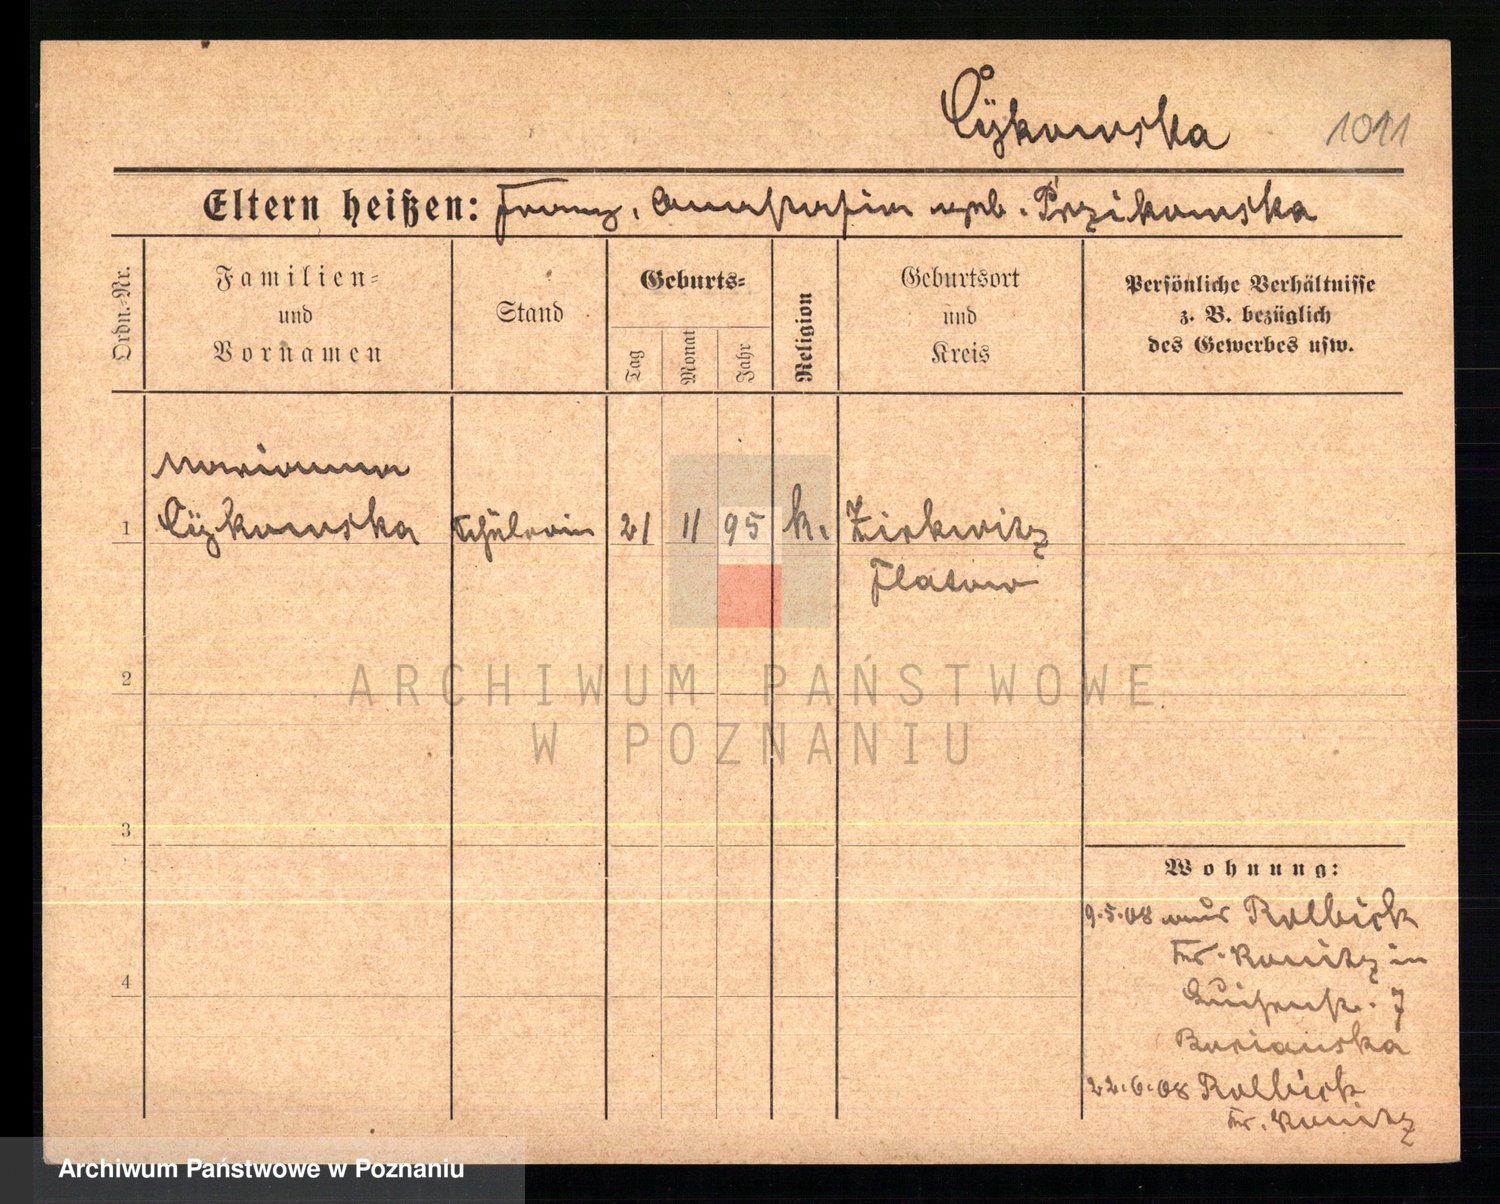 Cÿkowska 1011
Eltern heißen: Franz, Anastasia geb. Przikowska
Ordn.-Nr.
Familien-
und
Vornamen
Stand
Geburts-
Tag
Monat
Jahr
Religion
Geburtsort
und
Kreis
Persönliche Verhältnisse
z. B. bezüglich
des Gewerbes usw.
Marianna
1 Cÿkowska Schülerin 21 11 95 k. Zirkwitz
Flatow
2
ARCHIWUM PAŃSTWOWE
W POZNANIU
3
Wohnung:
9.5.08 aus Rolbick
Kr. Konitz in
Luisenstr. 7
Burianska
4
22.6.08 Rolbick
Kr. Konitz
Archiwum Państwowe w Poznaniu